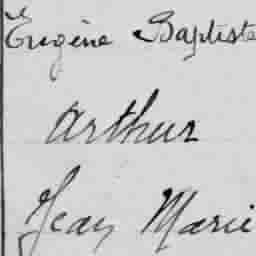 Eugène Baptiste
Arthur
Jean Marie